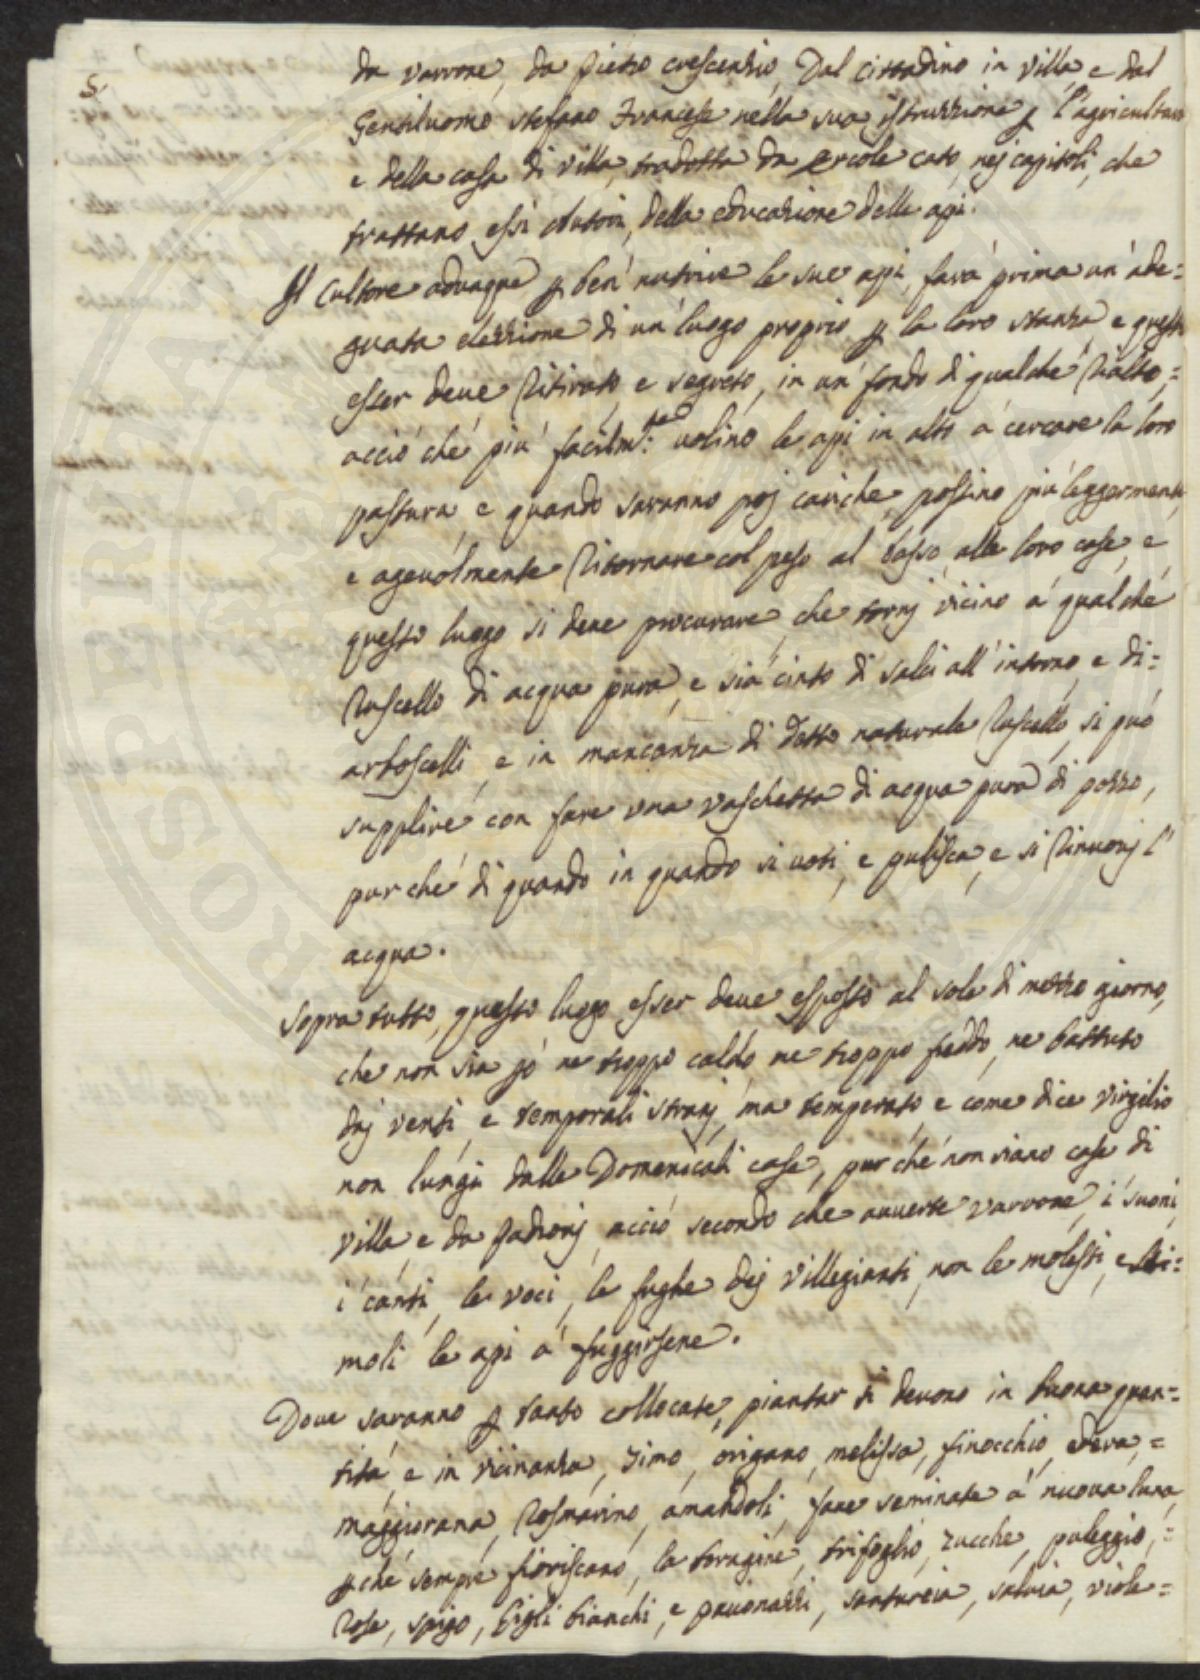 5.
da varrone, da Pietro crescenzio, Dal Cittadino in Villa e dal
Gentiluomo stefano Francese nella sua istruzzione p l'agricultura
e della casa di villa, tradotta da ercole cato, nej capitoli, che
trattano essi Autori, della educazione delle api.
Il Cultore adunque p ben nutrire le sue api, farà prima un'ade=
guata elezzione di un luogo proprio p la loro stanza, e questo
esser deue Ritirato, e segreto, in un fondo di qualche Rialto,=
acciò che più facilm:te uolino le api in alto à cercare la loro
pastura, e quando saranno poj cariche, possino più leggermente,
e ageuolmente Ritornare col peso al basso alle loro case, e
questo luogo si deue procurare, che tornj vicino à qualche
Ruscello di acqua pura, e sia cinto di salci all'intorno, e di=
arboscelli, e in mancanza di detto naturale Ruscello, si può
supplire con fare una vaschetta di acqua pura di pozzo,
purché di quando in quando si uoti, e pulisca, e si Rinuouj l'
acqua.
Sopra tutto, questo luogo esser deue esposto al sole di mezzo giorno,
che non sia pò ne troppo caldo ne troppo freddo, ne battuto
daj venti, e temporali stranj, ma temperato, e come dice virgilio
non lungi dalle Domenicali case, purché non siano case di
villa, e da Padronj, acciò secondo che auuerte varrone, i suoni,
i canti, le voci, le fughe dej Villegianti, non le molesti, e sti=
moli le api à fuggirsene.
Doue saranno p tanto collocate, piantar si deuono in buona quan=
tità, e in vicinanza, Timo, origano, melissa, finocchio, edera,=
maggiorana, Rosmarino, amandoli, faue seminate à nuoua luna,
pché sempre fioriscano, la boragine, trifoglio, zucche, puleggio,=
Rose, spigo, Gigli bianchi, e pauonazzi, santureia, saluia, viole=
PROSPERITA